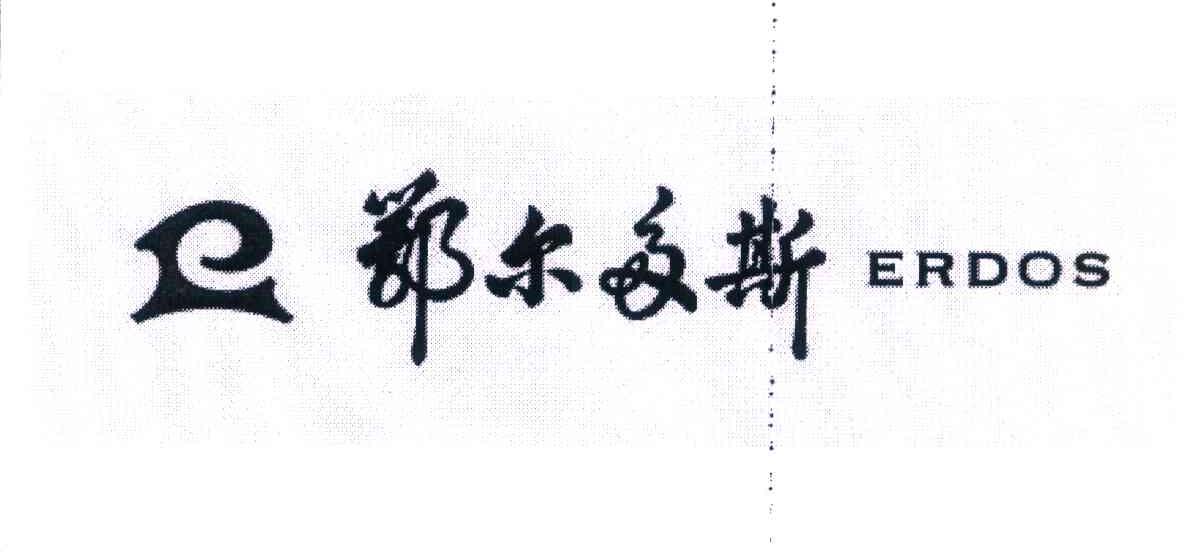 鄂尔多斯 ERDOS